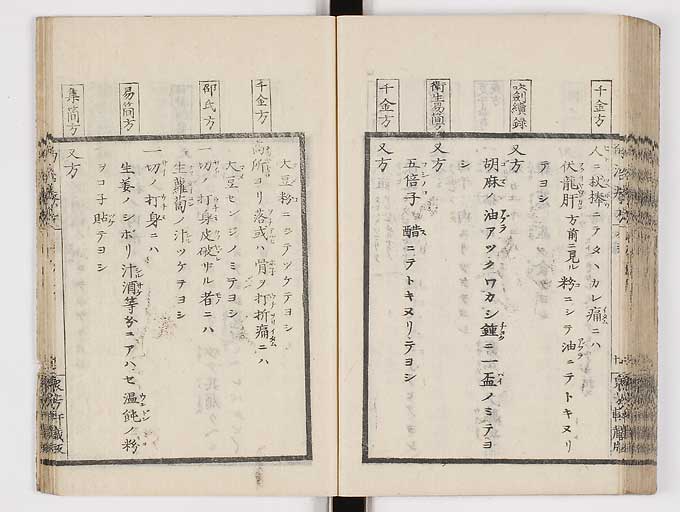 千金方
人ニ杖捧ニテタヽカレ痛ニハ
伏龍肝方前ニ見ル粉ニシテ油ニテトキヌリ
テヨシ
吹劔續録
又方
胡麻ノ油アツクワカシ鍾ニ一盃ノミテヨ
シ
衛生易簡方
又方
五倍子ヲ醋ニテトキヌリテヨシ
千金方
又方
大豆粉ニシテツケテヨシ
千金方
高所ヨリ落或ハ骨ヲ打折痛ニハ
大豆センジノミテヨシ
邵氏方
一切ノ打身皮破ザル者ニハ
生蘿蔔ノ汁ツケテヨシ
易簡方
一切ノ打身ニハ
生姜ノシボリ汁酒等分ニアハセ温飩ノ粉
ヲコ子貼テヨシ
集簡方
又方